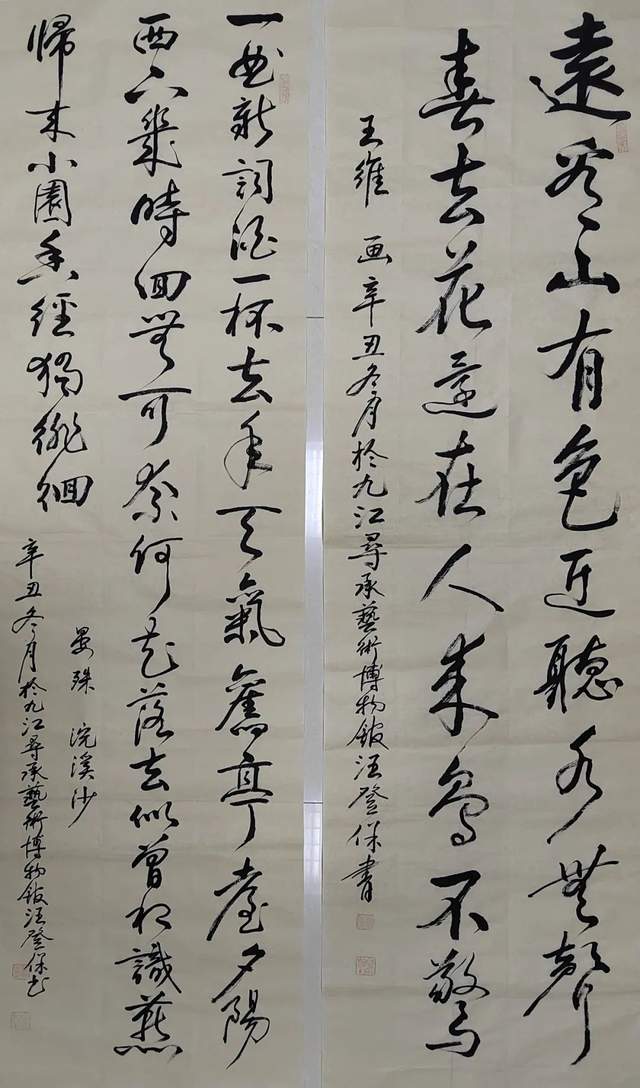 遠看山有色近聽水無聲
春去花還在人來鳥不驚
王維 画 辛丑冬月於九江尋承藝術博物館汪登保書
一曲新詞酒一杯去年天氣舊亭臺夕陽
西下幾時回無可奈何花落去似曾相識燕
歸來小園香徑獨徘徊
晏殊 浣溪沙
辛丑冬月於九江尋承藝術博物館汪登保書